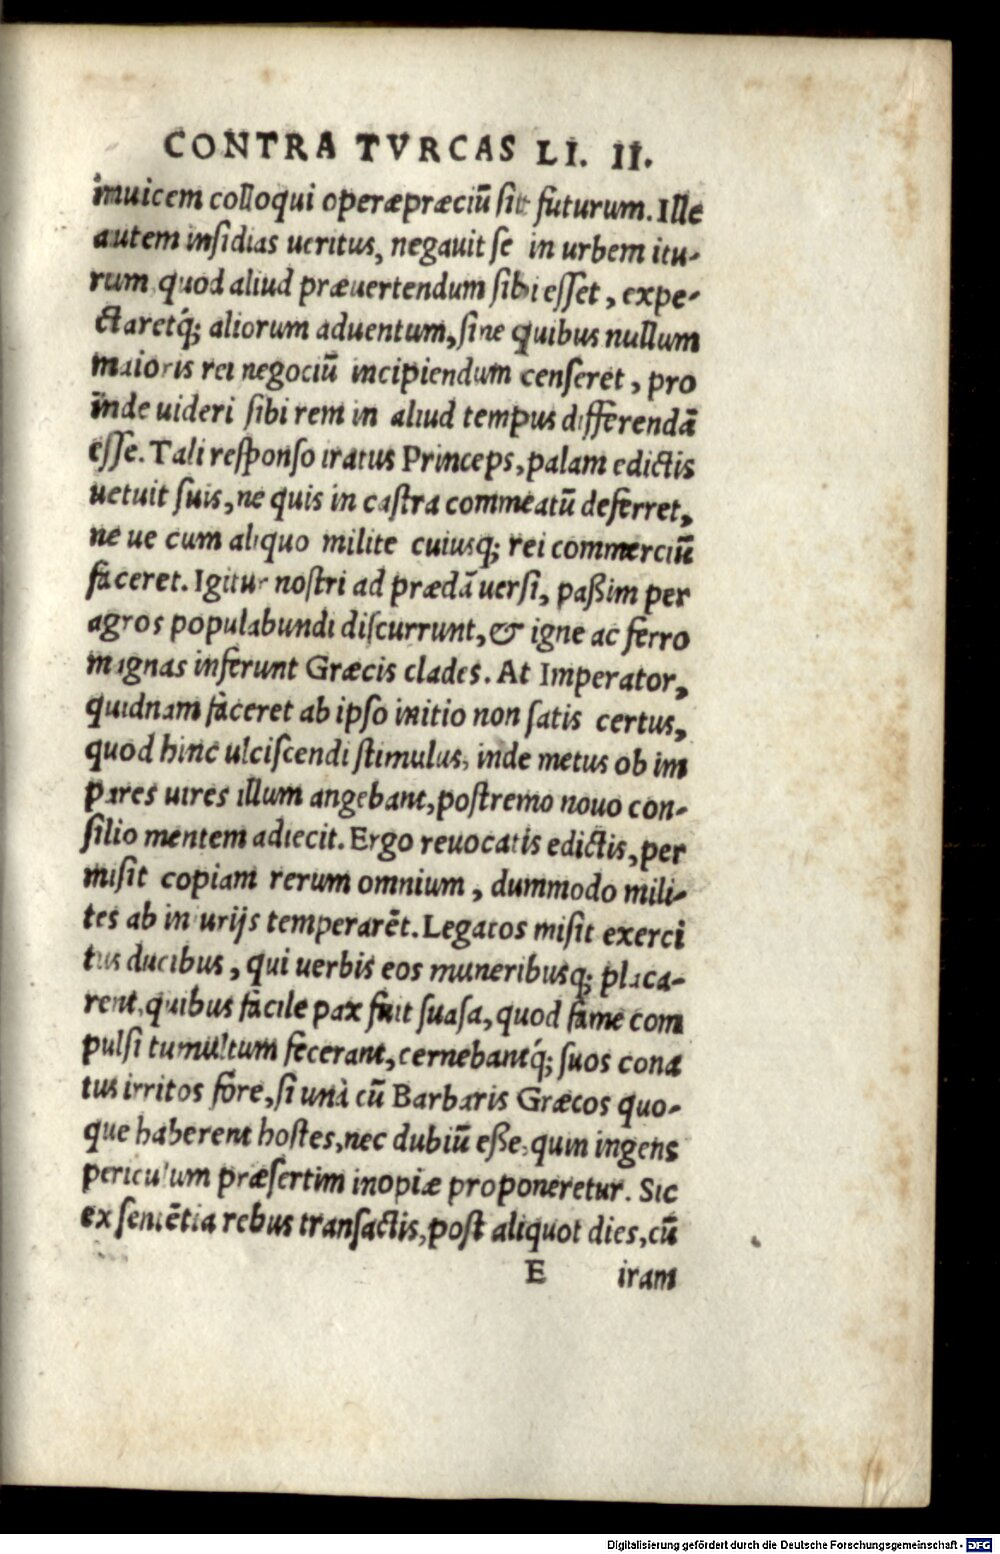 CONTRA TVRCAS LI. II.
inuicem colloqui operæpræciũ sit futurum. Ille
autem insidias ueritus, negauit se in urbem itu-
rum quod aliud præuertendum sibi esset, expe-
ctaretq́; aliorum aduentum, sine quibus nullum
maioris rei negociũ incipiendum censeret, pro
inde uideri sibi rem in aliud tempus differendã
esse. Tali responso iratus Princeps, palam edictis
uetuit suis, ne quis in castra commeatũ deferret,
ne ue cum aliquo milite cuiusq; rei commerciũ
faceret. Igitur nostri ad prædã uersi, paßim per
agros populabundi discurrunt, & igne ac ferro
magnas inferunt Græcis clades. At Imperator,
quidnam faceret ab ipso initio non satis certus,
quod hinc ulciscendi stimulus, inde metus ob im
pares uires illum angebant, postremo nouo con-
silio mentem adiecit. Ergo reuocatis edictis, per
misit copiam rerum omnium, dummodo mili-
tes ab iniurijs temperarẽt. Legatos misit exerci
tus ducibus, qui uerbis eos muneribusq; placa-
rent, quibus facile pax fuit suasa, quod fame com
pulsi tumultum fecerant, cernebantq́; suos cona
tus irritos fore, si unà cũ Barbaris Græcos quo-
que haberent hostes, nec dubiũ eße, quin ingens
periculum præsertim inopiæ proponeretur. Sic
ex sentẽtia rebus transactis, post aliquot dies, cũ
E iram
Digitalisierung gefördert durch die Deutsche Forschungsgemeinschaft - DFG